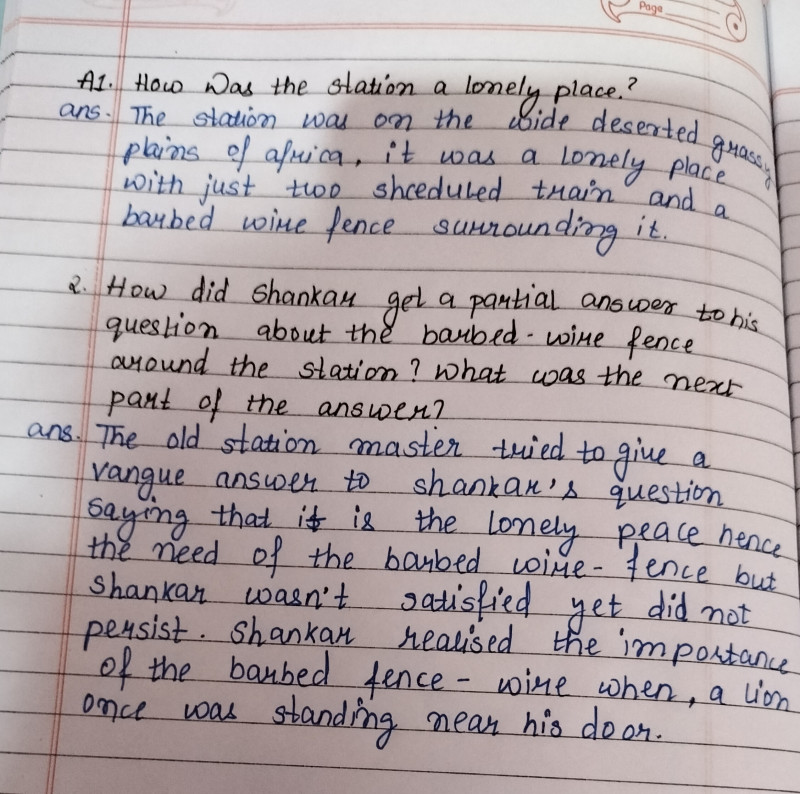 Page
A1. How Was the station a lonely place.?
ans. The station was on the wide deserted grassy
plains of africa, it was a lonely place
with just two shceduled train and a
barbed wire fence surrounding it.
2. How did Shankar get a partial answer to his
question about the barbed-wire fence
around the station? What was the next
part of the answer?
ans. The old station master tried to give a
vangue answer to shankar's question
saying that it is the lonely peace hence
the need of the barbed wire- fence but
Shankar wasn't satisfied yet did not
persist. Shankar realised the importance
of the barbed fence- wire when, a lion
once was standing near his door.